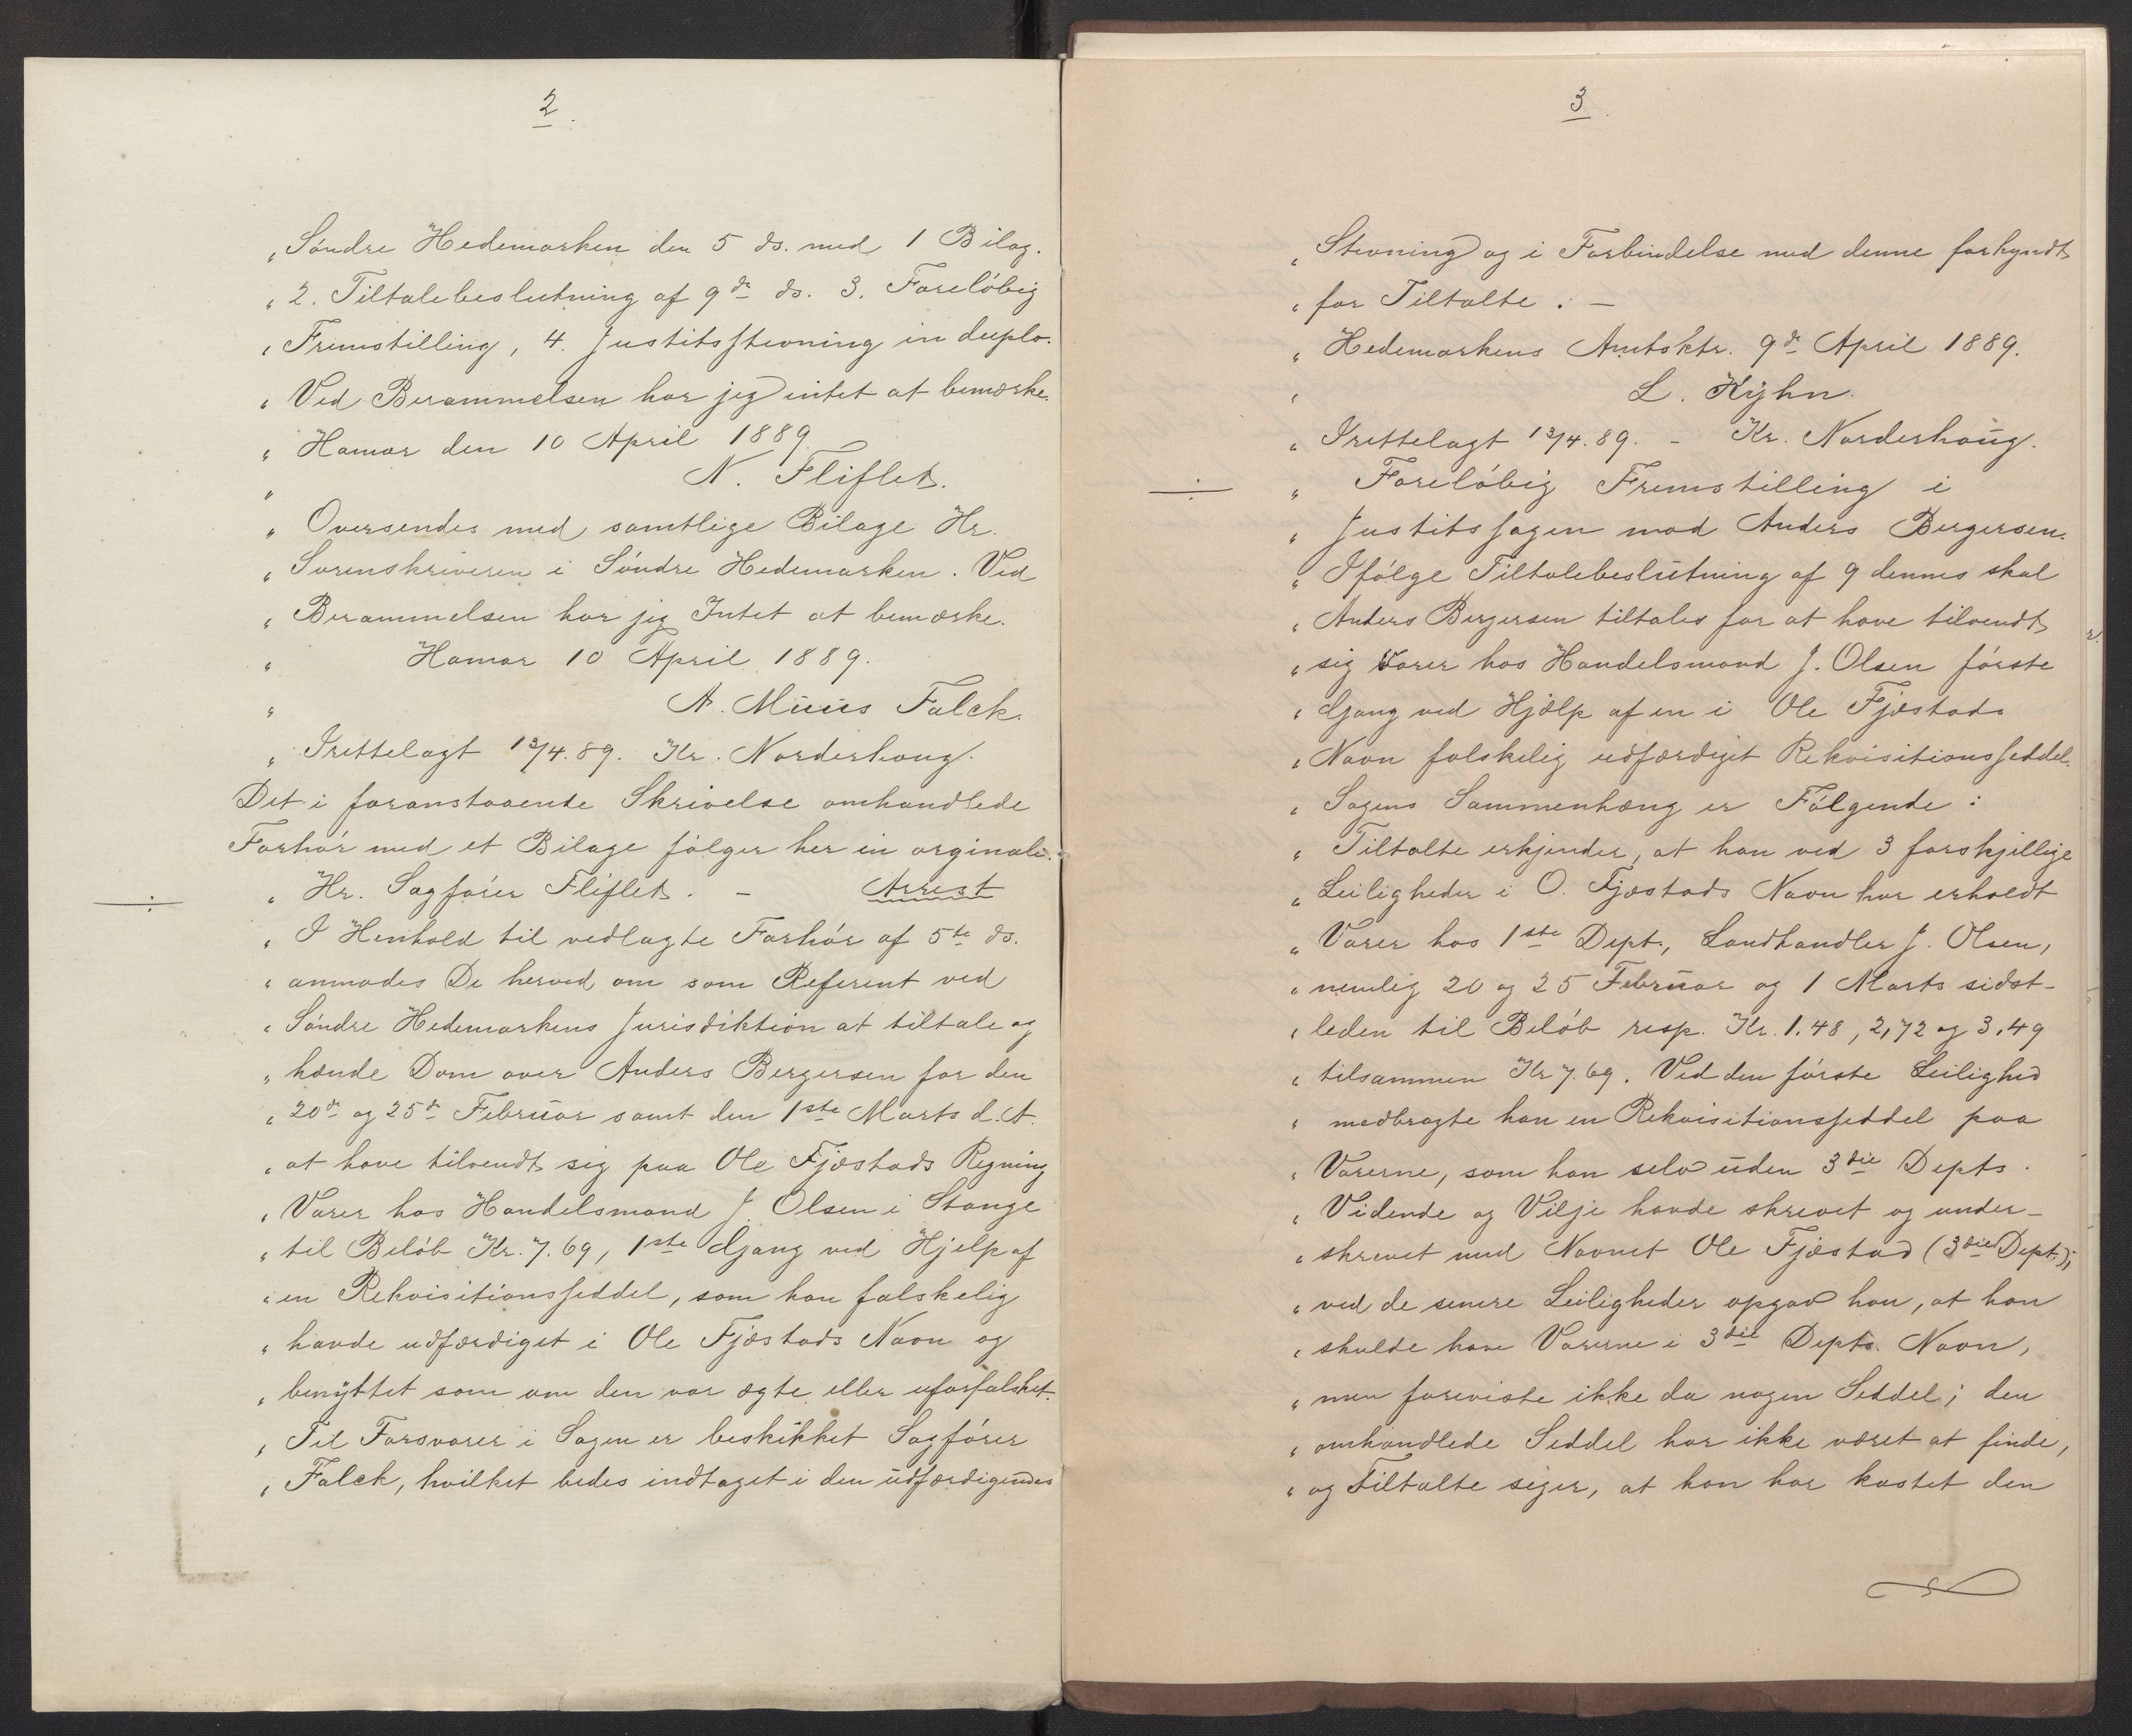 2.
„Søndre Hedemarken den 5 ds. med 1 Bilag.
„2. Tiltalebeslutning af 9de ds. 3. Foreløbig
„Fremstilling, 4. Justitsstevning in duplo.
„Ved Berammelsen har jeg intet at bemærke.
„Hamar den 10 April 1889.
„ N. Fliflet.
„Oversendes med samtlige Bilage Hr.
„Sorenskriveren i Søndre Hedemarken. Ved
„Berammelsen har jeg Intet at bemærke.
„ Hamar 10 April 1889.
„ A. Muus Falck.
„Irettelagt 13/4.89. Kr. Norderhoug.
Det i foranstaaende Skrivelse omhandlede
Forhør med et Bilage følger her in orginali.
÷ „Hr. Sagfører Fliflet. – Arrest
„I Henhold til vedlagte Forhør af 5te ds.
„anmodes De herved om som Referent ved
„Søndre Hedemarkens Jurisdiktion at tiltale og
„hænde Dom over Anders Bergersen for den
„20de og 25de Februar samt den 1ste Marts d. A.
„at have tilvendt sig paa Ole Fjæstads Regning
„Varer hos Handelsmand J. Olsen i Stange
„til Beløb Kr. 7.69, 1ste Gang ved Hjelp af
„en Rekvisitionsseddel, som han falskelig
„havde udfærdiget i Ole Fjæstads Navn og
„benyttet som om den var ægte eller uforfalsket.
„Til Forsvarer i Sagen er beskikket Sagfører
„Falck, hvilket bedes indtaget i den udfærdigendes
3.
„Stevning og i Forbindelse med denne forkyndt
„for Tiltalte. –
„Hedemarkens Amtsktr. 9de April 1889.
„ L. Kyhn.
„Irettelagt 13/4.89. – Kr. Norderhoug.
÷ „Foreløbig Fremstilling i
„Justitssagen mod Anders Bergersen.
„Ifølge Tiltalebeslutning af 9 dennes skal
„Anders Bergersen tiltales for at have tilvendt
„sig Varer hos Handelsmand J. Olsen første
„Gang ved Hjælp af en i Ole Fjæstads
„Navn falskelig udfærdiget Rekvisitionsseddel.
„Sagens Sammenhæng er Følgende:
„Tiltalte erkjender, at han ved 3 forskjellige
„Leiligheder i O. Fjæstads Navn har erholdt
„Varer hos 1ste Dept., Landhandler J. Olsen,
„nemlig 20 og 25 Februar og 1 Marts sidst-
„leden til Beløb resp. Kr. 1.48, 2,72 og 3.49
„tilsammen Kr 7.69. Ved den første Leilighed
„medbragte han en Rekvisitionsseddel paa
„Varerne, som han selv uden 3die Depts.
„Vidende og Vilje havde skrevet og under-
„skrevet med Navnet Ole Fjæstad (3die Dept.);
„ved de senere Leiligheder opgav han, at han
„skulde have Varerne i 3die Depts. Navn,
„men foreviste ikke da nogen Seddel; den
„omhandlede Seddel har ikke været at finde,
„og Tiltalte siger, at han har kastet den